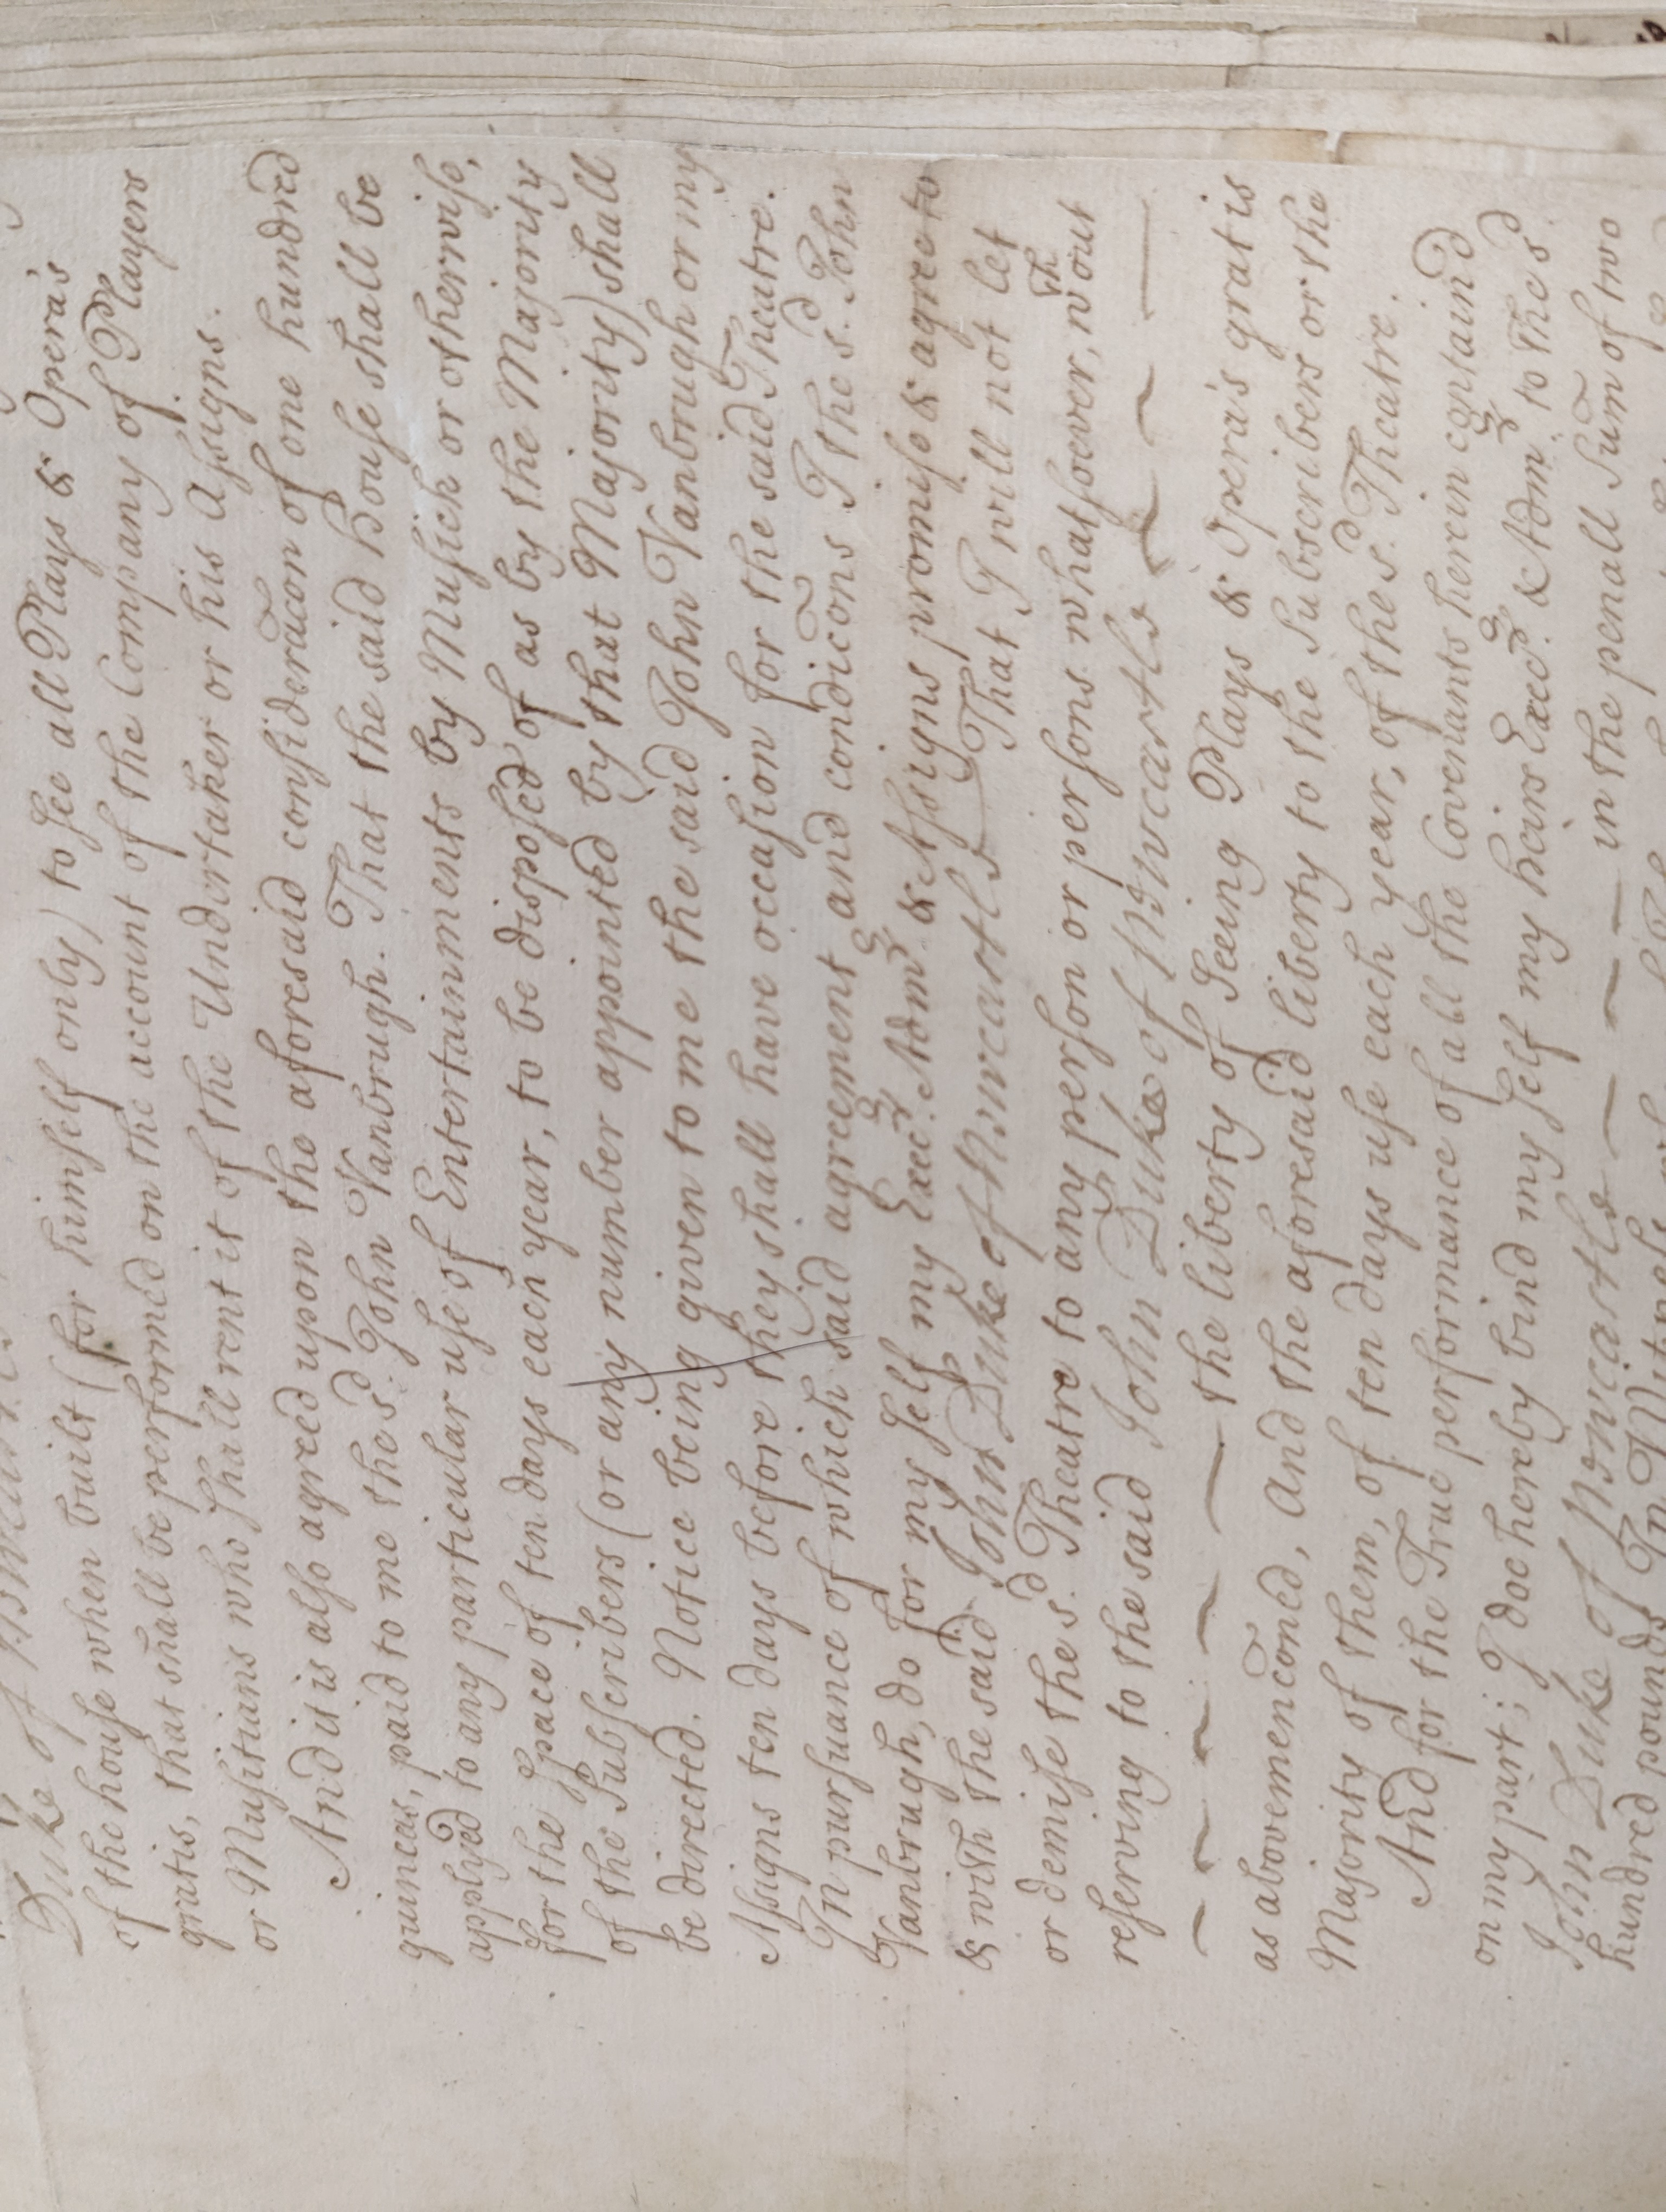 Duke of Newcastle
of the house when built (for himself only) to see all Plays & Opera's
gratis, that shall be performed on the account of the Company of Players
or Musitians who shall rent it of the Undertaker or his Assigns.
And it is also agreed upon the aforesaid consideracon of one hundred
guineas, paid to me the sd. John Vanbrugh. That the said house shall be
applyed to any particular use of Entertainments by Musick or otherwise,
for the space of ten days each year, to be disposed of as by the Majority
of the Subscribers (or any number appointed by that Majority) shall
be directed. Notice being given to me the said John Vanbrugh or my
Assigns ten days before they shall have occasion for the said Theatre.
In pursuance of which said agreement and condicons I the sd. John
Vanbrugh, do for my self my Execrs. Admrs. & Assigns promise & agree to
& with the said John Duke of Newcastle That I will not let
or demise the sd. Theatre to any person or persons whatsoever, wthout
reserving to the said John Duke of Newcastle
the liberty of seeing Plays & Opera's gratis
as abovemenconed, And the aforesaid liberty to the Subscribers or the
Majority of them, of ten days use each year, of the sd. Theatre.
And for the True performance of all the Covenants herein contained
on my part; I doe hereby bind my self my heirs Execrs. & Admrs. to the sd.
John Duke of Newcastle in the penall Sum of two
hundred pounds In Witness